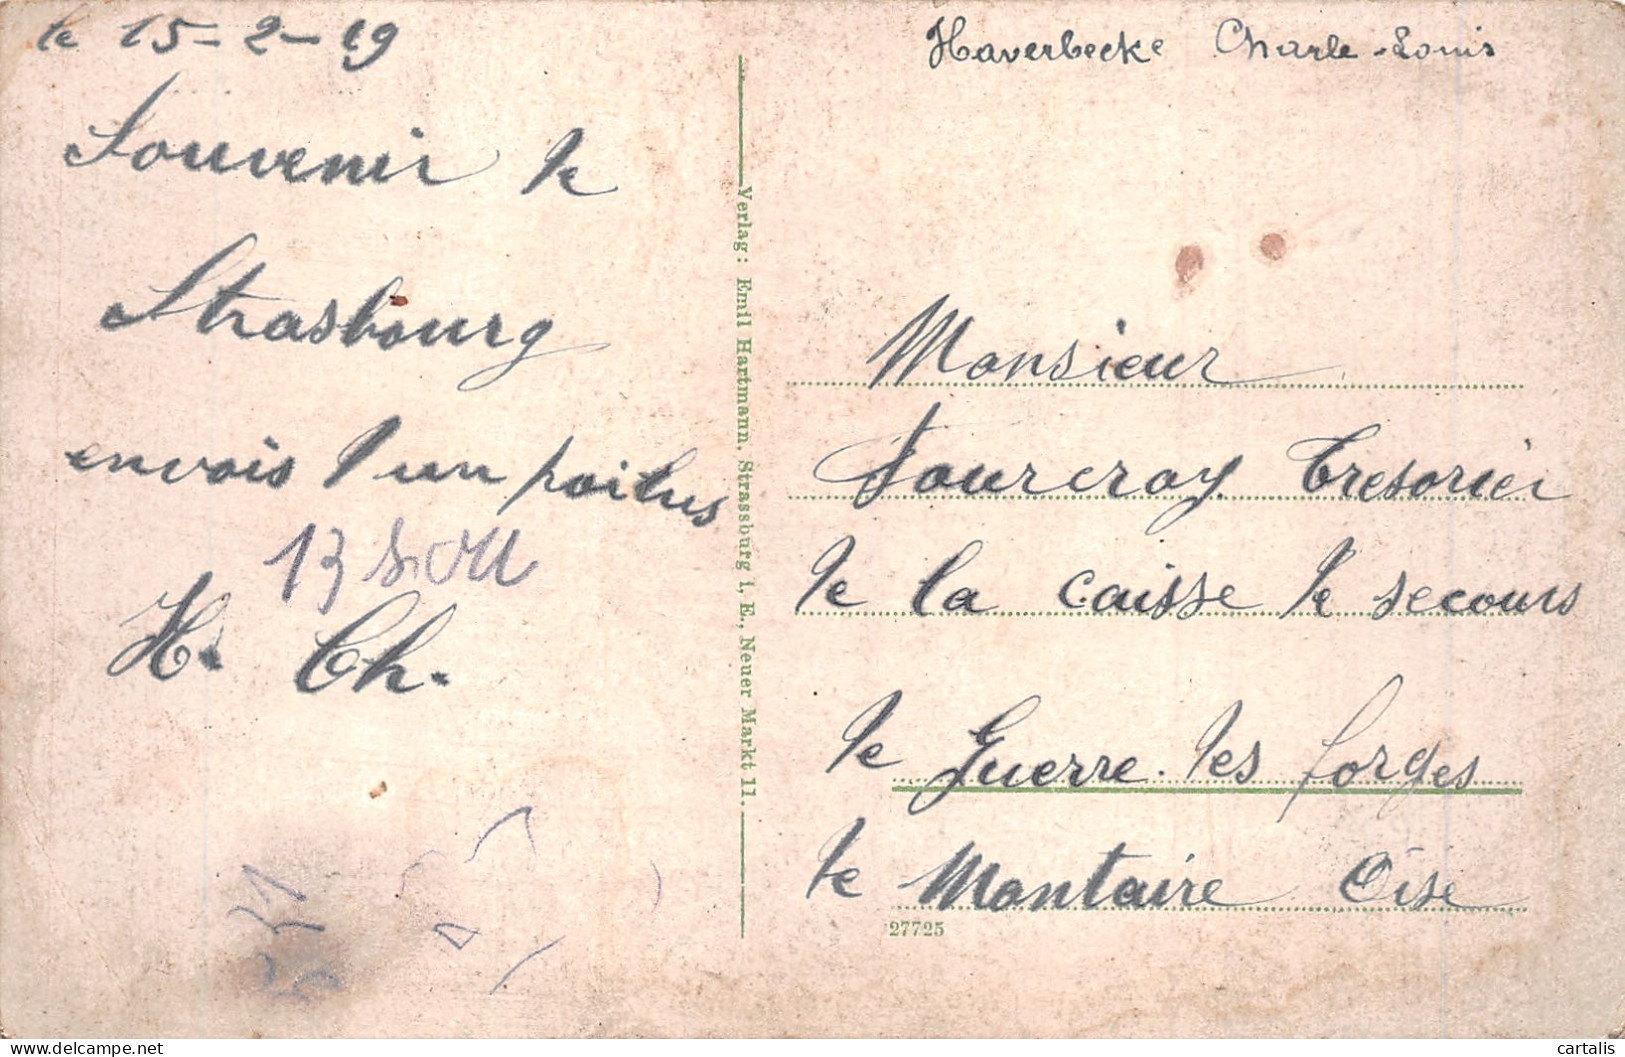 le 15-2-19
Souvenir de
Strasbourg
envois d'un poilus
H. Ch.
Verlag: Emil Hartmann, Strassburg i. E., Neuer Markt 11.
Haverbecke Charle-Louis
Monsieur
Fourcroy Tresorier
de la caisse de secours
de Guerre. des forges
de Montaire Oise
27725
delcampe.net
cartalis